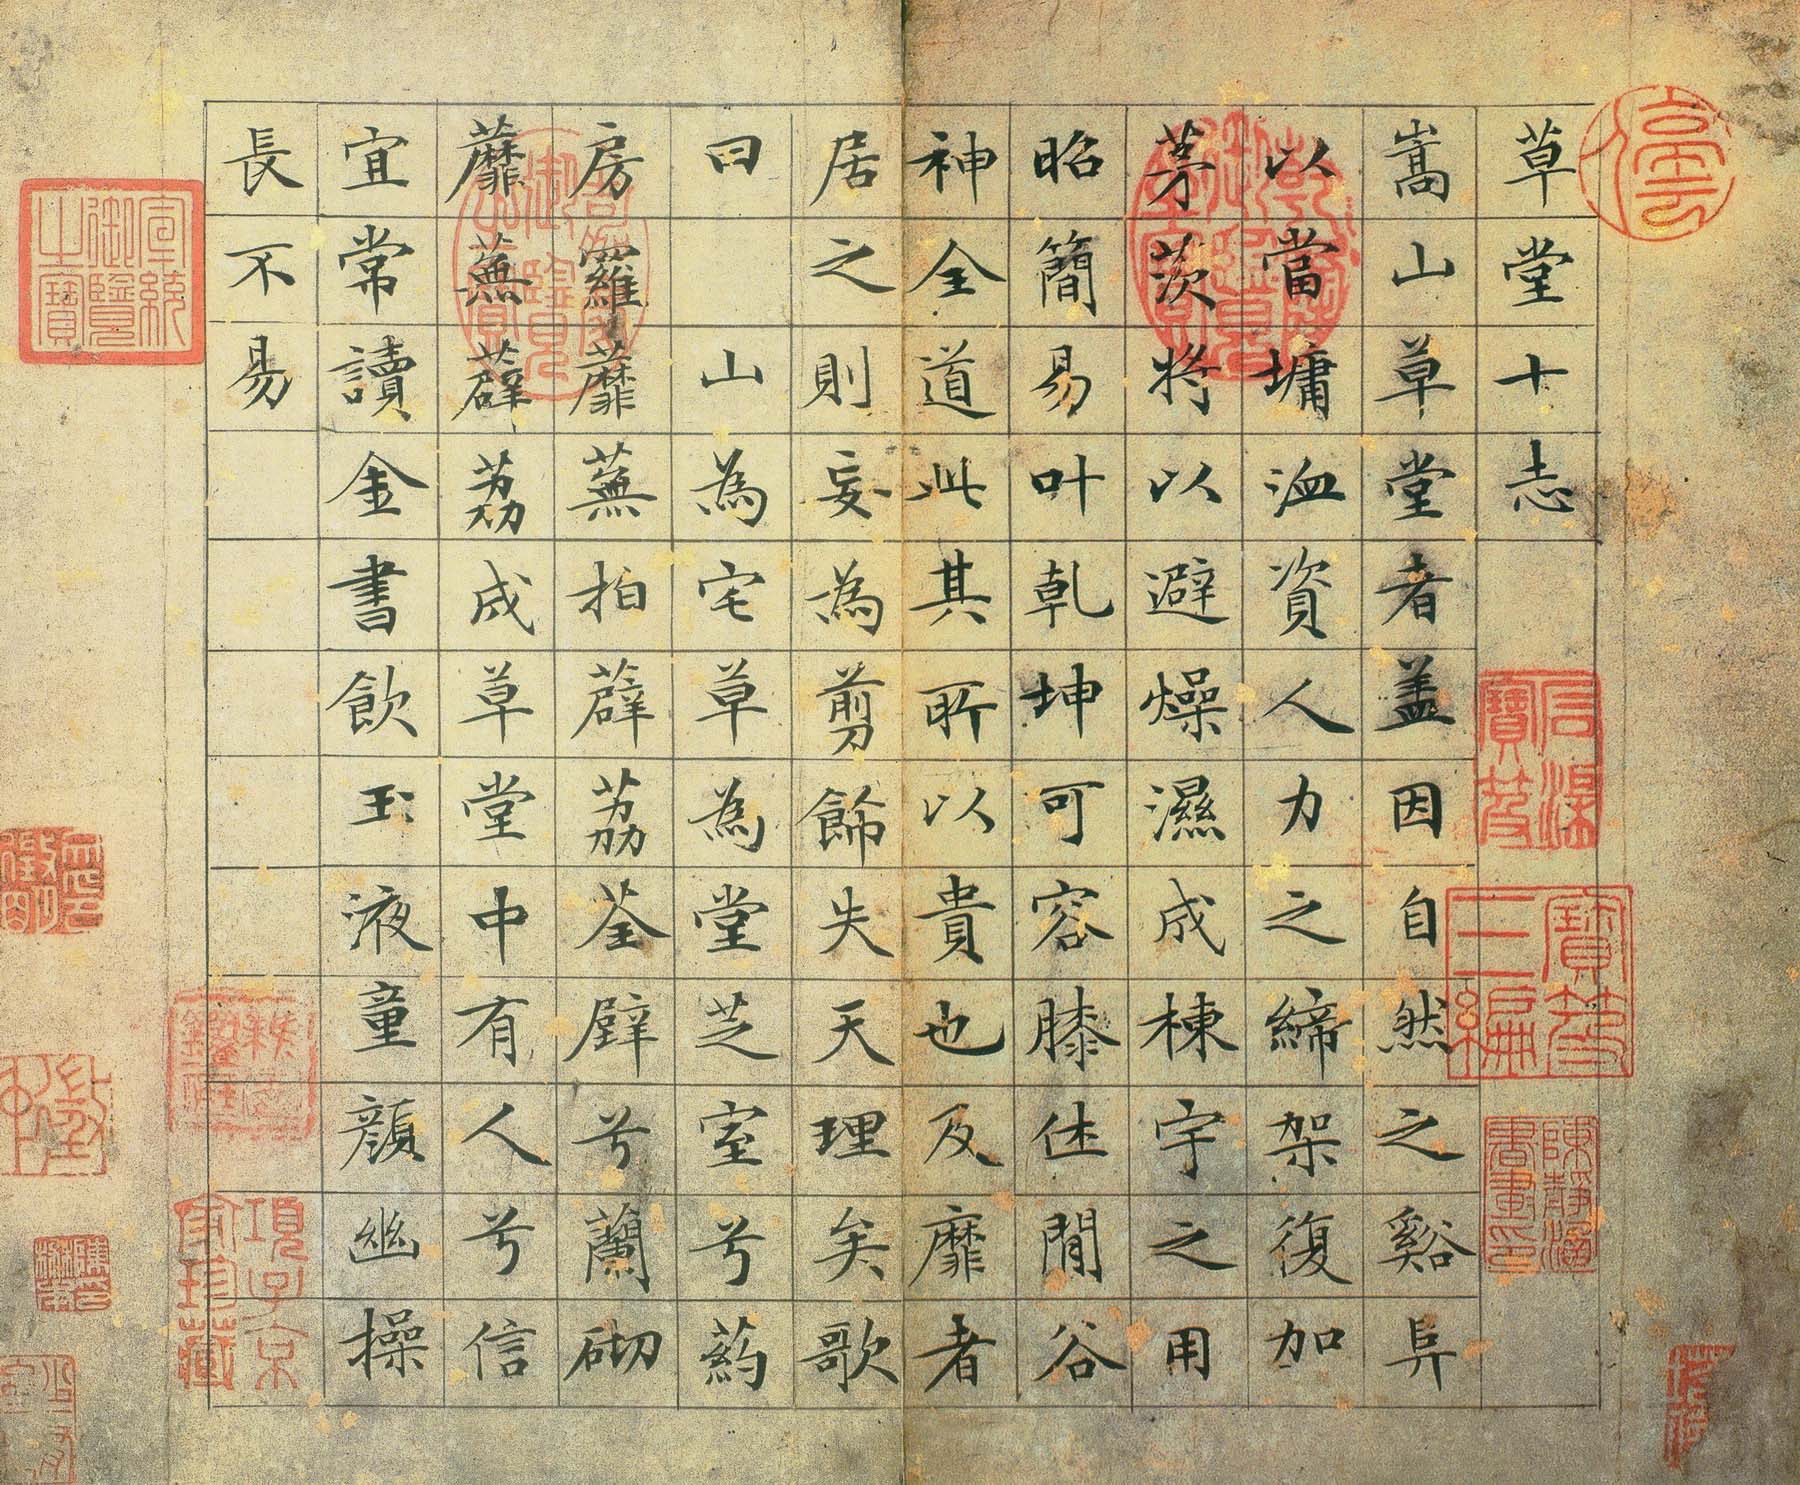 草堂十志
嵩山草堂者盖因自然之谿阜
以當墉洫資人力之締架復加
茅茨將以避燥濕成棟宇之用
昭簡易叶乾坤可容膝休閒谷
神全道此其所以貴也及靡者
居之則妄為剪餙失天理矣歌
曰 山為宅草為堂芝室兮葯
房羅蘼蕪拍薜荔荃壁兮蘭砌
蘼蕪薜荔成草堂中有人兮信
宜常讀金書飲玉液童顏幽操
長不易
宣統御覽之寶
乾隆御覽之寶
嘉慶御覽之寶
石渠寶笈
寶笈三編
項子京家珍藏